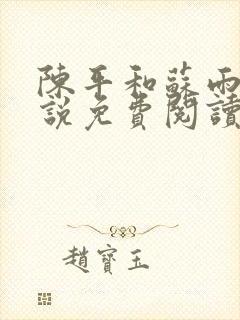 陳平和蘇雨
說免費閱讀
趙寶玉